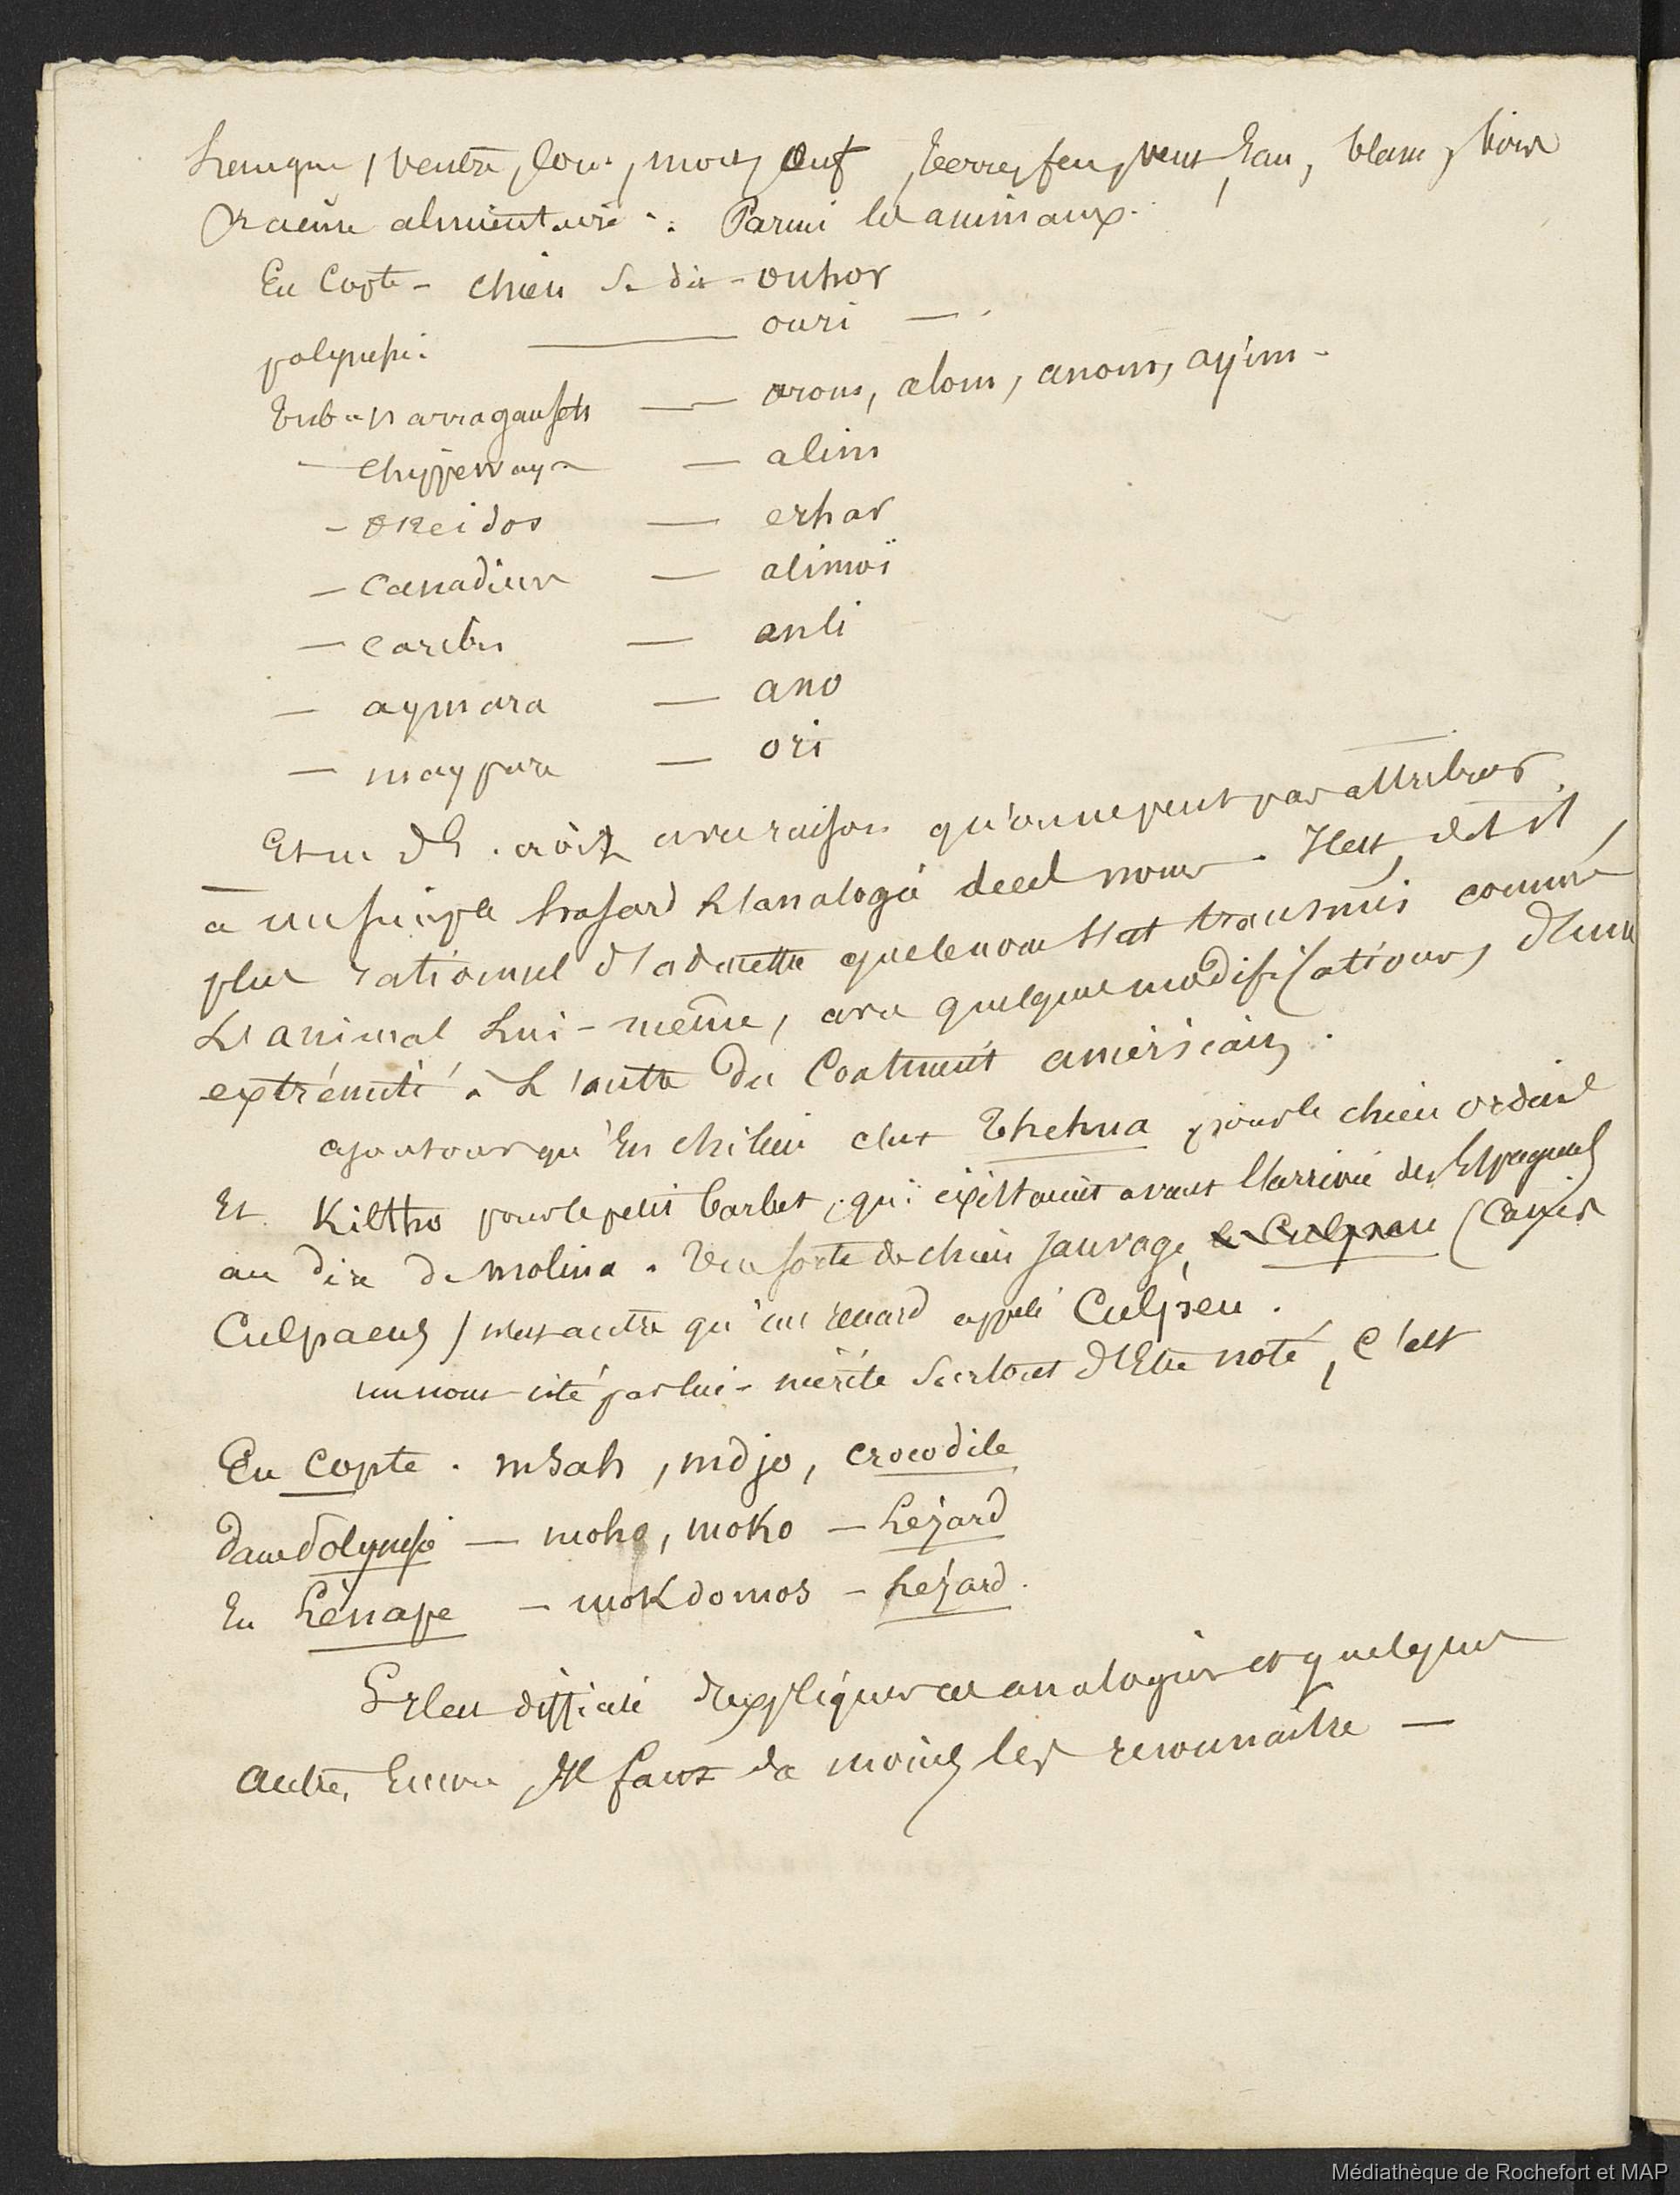 Langue, ventre, cou, mort, Œuf, terre, feu, vent, Eau, blanc, noir
Racine alimentaire. Parmi les animaux.
En Copte - chien se dit - ouhor
polynésie — ouri —
narragansets — arom, alom, anoum, ayim -
— chippeways — alim
- oneidos — erhar
— canadien — alimoï
— caribes — anli
— aymara — ano
— maypure — ori
croit avec raison qu'on ne peut pas attribuer
à un simple hasard L'analogie de ces noms. Il est, dit il,
plus rationnel d'admettre que le nom s'est transmis comme
L'animal Lui-même, avec quelques modifications, d'une
extrémité à L'autre du Continent américain.
ajoutons qu'En chilien c'est Thehua pour le chien ordin.
Et Kiltho pour le petit barbet, qui existaient avant l'arrivée des Espagnols
au dire de molina. Une sorte de chien sauvage, le Culpeau (Canis
Culpaeus) n'est autre qu'un renard appelé Culpeu.
un nom cité par lui - mérite surtout d'Etre noté, C'est
En Copte. msah, mdjo, crocodile
dans Polynésie — moho, moko — Lézard
En Lénape — mokdomos — Lézard.
Il est difficile d'expliquer ces analogies et quelques
autres Encore, Il faut du moins les reconnaître —
Médiathèque de Rochefort et MAP